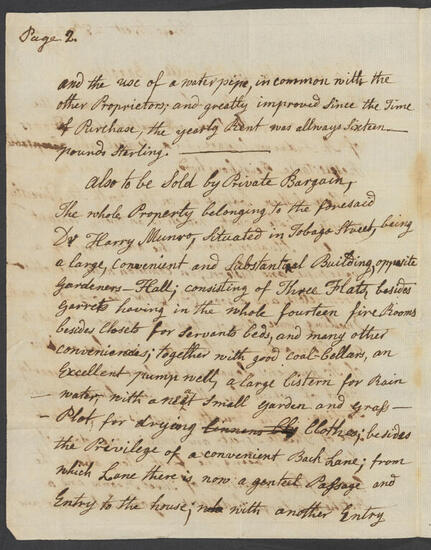 Page 2.
and the use of a water pipe, in common with the
other Proprietors; and greatly improved since the Time
of Purchase, the yearly Rent was allways Sixteen
pounds Sterling.
also to be Sold by Private Bargain,
The whole Property belonging to the foresaid
Dr. Harry Munro, Situated in Tobago Street, being
a large, Convenient and Substantial Building, opposite
Gardeners-Hall; consisting of Three Flats, besides
Garrets having in the whole fourteen fire Rooms
besides Closets for Servants beds, and many other
conveniences; together with good Coal-Cellars, an
Excellent pump well, a large Cistern for Rain
- water, with a neat Small Garden and Grass
- Plot, for drying Linnens Clothes; besides
the Privilege of a convenient Back Lane; from
which Lane there is now a genteel Passage and
Entry to the house; with another Entry